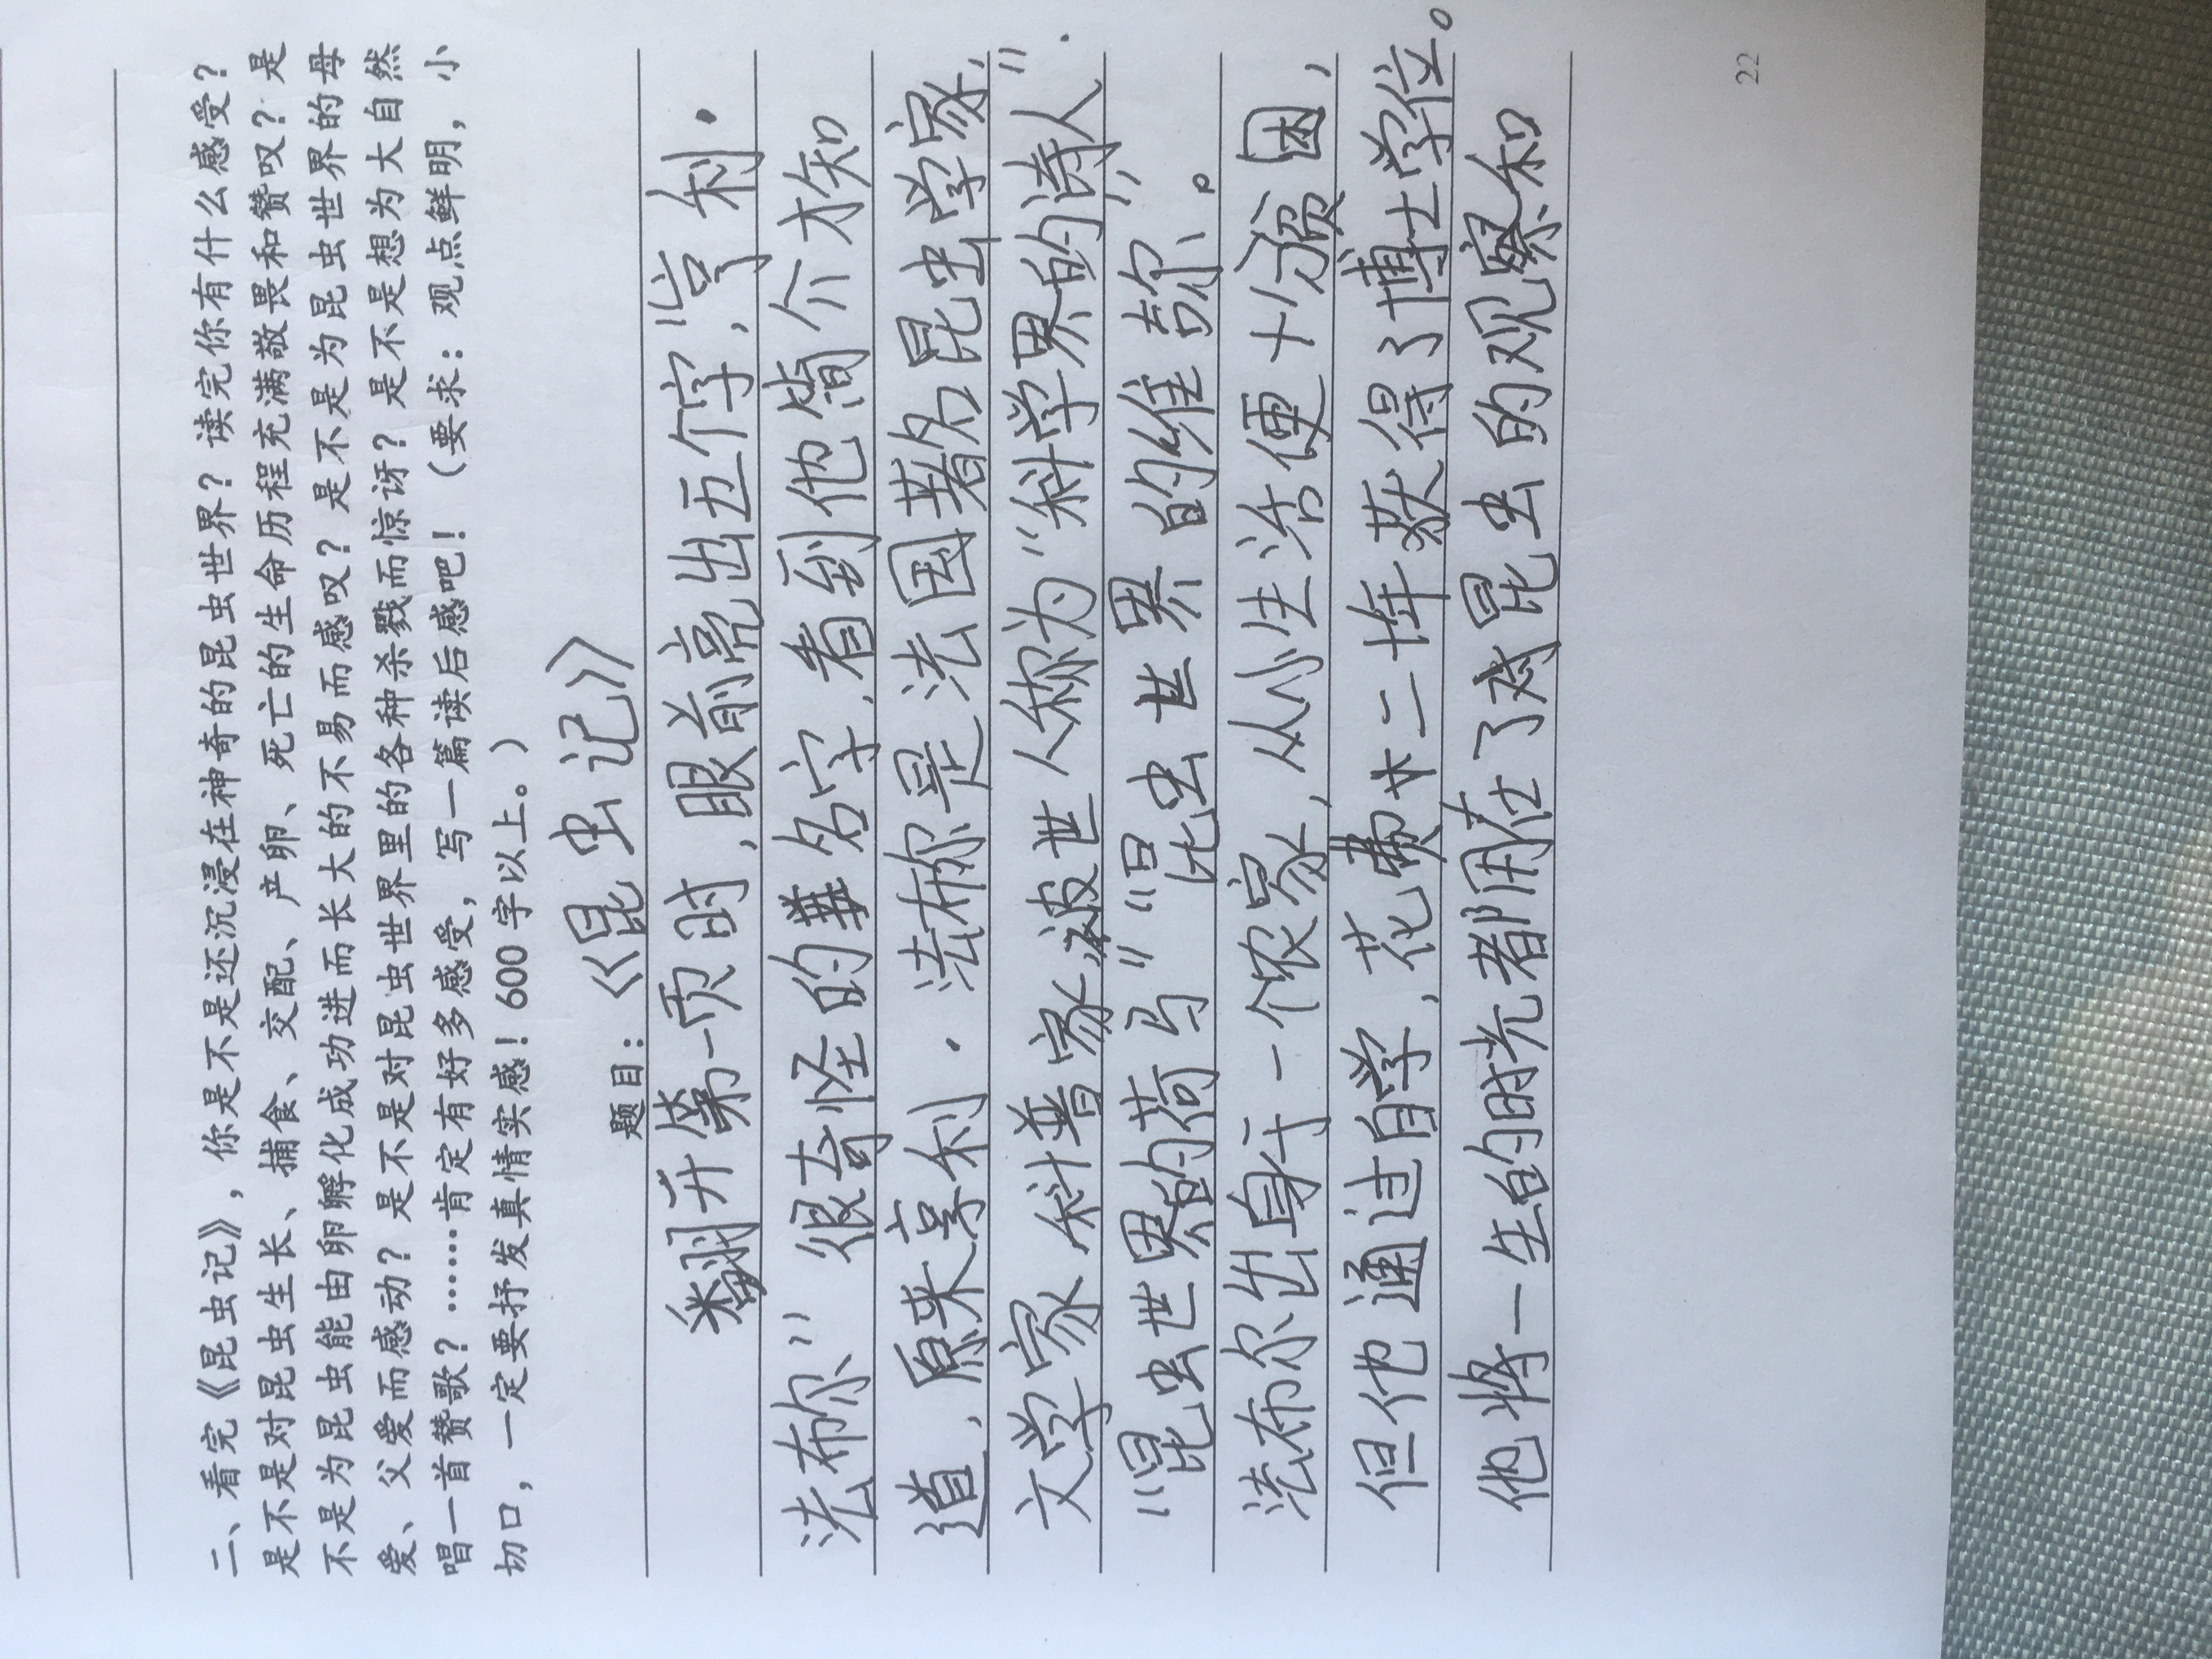 二、看完《昆虫记》，你是不是还沉浸在神奇的昆虫世界？读完你有什么感受？
是不是对昆虫生长、捕食、交配、产卵、死亡的生命历程充满敬畏和赞叹？是
不是为昆虫能由卵孵化成功进而长大的不易而感叹？是不是为昆虫世界的母
爱、父爱而感动？是不是对昆虫世界里的各种杀戮而惊讶？是不是想为大自然
唱一首赞歌？……肯定有好多感受，写一篇读后感吧！（要求：观点鲜明，小
切口，一定要抒发真情实感！600字以上。）
题目：《昆虫记》
翻开第一页时，眼前亮出五个字，“亨利·
法布尔”很奇怪的名字，看到他简介才知
道，原来亨利·法布尔是法国著名昆虫学家，
文学家，科普家，被世人称为“科学界的诗人”·
“昆虫世界的荷马”“昆虫世界的维吉尔”。
法布尔出身于一个农家，从小生活便十分贫困，
但他通过自学，花费十二年获得了博士学位。
他将一生的时光都用在了对昆虫的观察和
22